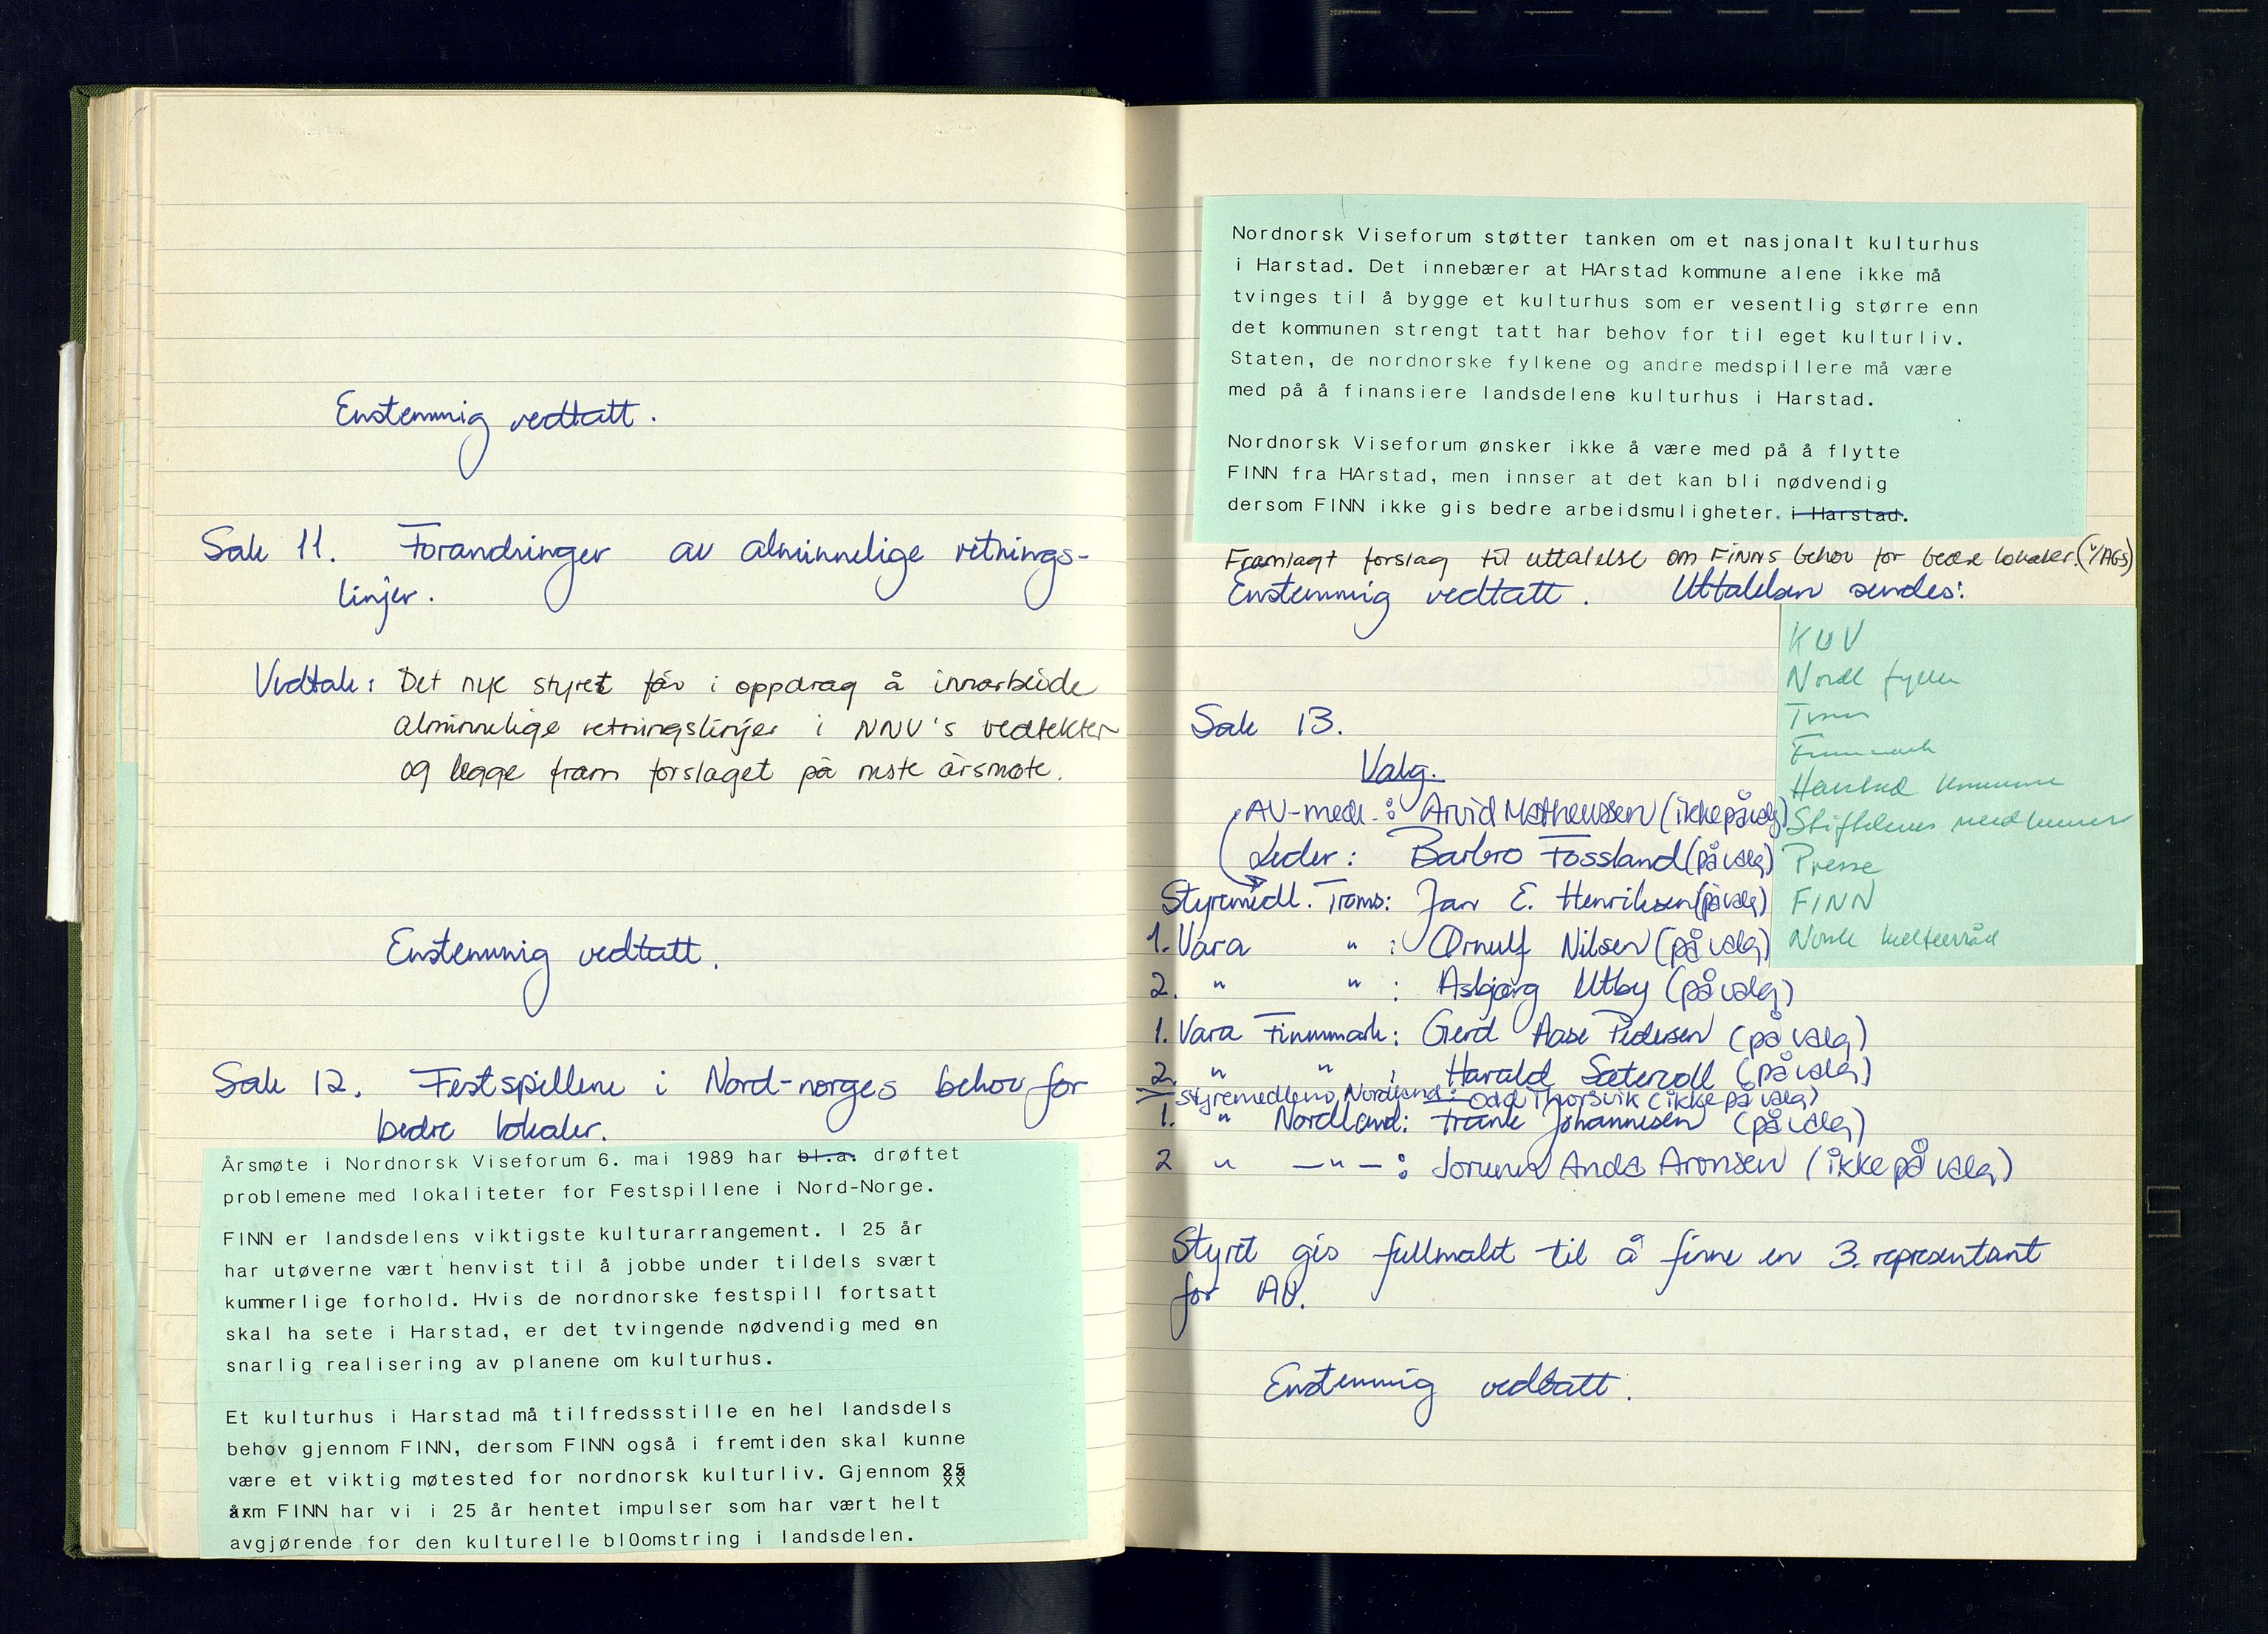 Enstemmig vedtatt.
Sak 11. Forandringer av alminnelige retnings-
linjer.
Vedtak: Det nye styret får i oppdrag å innarbeide
alminnelige retningslinjer i NNV's vedtekter
og legge fram forslaget på neste årsmøte.
Enstemmig vedtatt.
Sak 12. Festspillene i Nord-norges behov for
bedre lokaler.
Årsmøte i Nordnorsk Viseforum 6. mai 1989 har bl.a. drøftet
problemene med lokaliteter for Festspillene i Nord-Norge.
FINN er landsdelens viktigste kulturarrangement. I 25 år
har utøverne vært henvist til å jobbe under tildels svært
kummerlige forhold. Hvis de nordnorske festspill fortsatt
skal ha sete i Harstad, er det tvingende nødvendig med en
snarlig realisering av planene om kulturhus.
Et kulturhus i Harstad må tilfredssstille en hel landsdels
behov gjennom FINN, dersom FINN også i fremtiden skal kunne
være et viktig møtested for nordnorsk kulturliv. Gjennom 25
årm FINN har vi i 25 år hentet impulser som har vært helt
avgjørende for den kulturelle bl0omstring i landsdelen.
Nordnorsk Viseforum støtter tanken om et nasjonalt kulturhus
i Harstad. Det innebærer at HArstad kommune alene ikke må
tvinges til å bygge et kulturhus som er vesentlig større enn
det kommunen strengt tatt har behov for til eget kulturliv.
Staten, de nordnorske fylkene og andre medspillere må være
med på å finansiere landsdelens kulturhus i Harstad.
Nordnorsk Viseforum ønsker ikke å være med på å flytte
FINN fra HArstad, men innser at det kan bli nødvendig
dersom FINN ikke gis bedre arbeidsmuligheter. i Harstad.
Framlagt forslag til uttalelse om FINNs behov for bedre lokaler. (v/AGS)
Enstemmig vedtatt. Uttalelsen sendes:
KUV
Nordl fylke
Troms
Finnmark
Harstad kommune
Stiftelsens medlemmer
Presse
FINN
Norsk kulturråd
Sak 13.
Valg.
AU-medl.: Arvid Matheussen (ikke på valg)
Leder: Barbro Fossland (på valg)
Styremedl. Troms: Jan E. Henriksen (på valg)
1. Vara " : Ørnulf Nilsen (på valg)
2. " " : Asbjørg Utby (på valg)
1. Vara Finnmark: Gerd Aase Pedersen (på valg)
2. " " : Harald Sætervoll (på valg)
Styremedlem Nordland: Odd Thorsvik (ikke på valg)
1. " Nordland: Frank Johannesen (på valg)
2 " — " — : Jorunn Anda Aronsen (ikke på valg)
Styret gis fullmakt til å finne en 3. representant
for AU.
Enstemmig vedtatt.